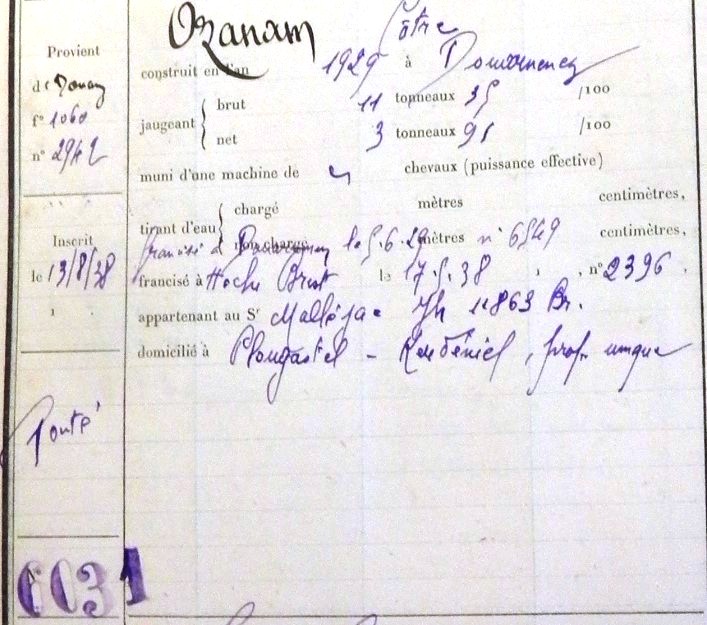 Ozanam Côtre
construit en l'an 1929 à Douarnenez
jaugeant { brut 11 tonneaux 35 /100
net 3 tonneaux 91 /100
muni d'une machine de chevaux (puissance effective)
tirant d'eau { chargé mètres centimètres,
non chargé mètres centimètres,
francisé à Douarnenez le 5.6.29 n° 6549
francisé à Brest le 17.5.38, n° 2396.
appartenant au Sr Malléjac 11863 Br.
domicilié à Plougastel - Kerdéniel, prof. unique
Provient
de Douarn
f° 1060
n° 2942
Inscrit
le 13/8/38
Ponté
6031